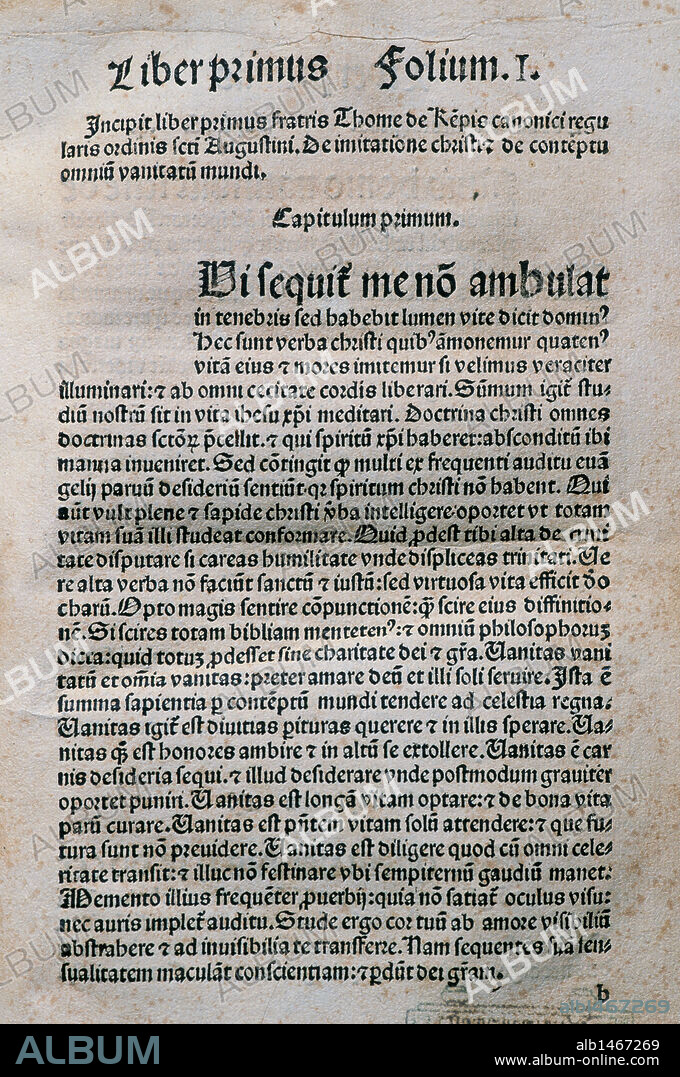 Liber primus Folium. I.
Incipit liber primus fratris Thome de Kēpis canonici regu
laris ordinis scti Augustini. De imitatione christi ⁊ de contēptu
omniū vanitatū mundi.
Capitulum primum.
Vi sequit᷑ me nō ambulat
in tenebris sed habebit lumen vite dicit domin⁹
Hec sunt verba christi quib⁹ āmonemur quaten⁹
vitā eius ⁊ mores imitemur si velimus veraciter
illuminari: ⁊ ab omni cecitate cordis liberari. Sūmum igit᷑ stu⸗
diū nostrū sit in vita ihesu xp̄i meditari. Doctrina christi omnes
doctrinas sctōꝝ p̄cellit. ⁊ qui spiritū xp̄i haberet: absconditū ibi
manna inueniret. Sed cōtingit ꝙ multi ex frequenti auditu euā
gelij paruū desideriū sentiūt. qꝛ spiritum christi nō habent. Qui
aūt vult plene ⁊ sapide christi v̄ba intelligere oportet vt totam
vitam suā illi studeat conformare. Quid ꝓdest tibi alta de trini
tate disputare si careas humilitate vnde displiceas trinitati. Ve
re alta verba nō faciūt sanctū ⁊ iustū: sed virtuosa vita efficit deo
charū. Opto magis sentire cōpunctionē: q̄ꝫ scire eius diffinitio⸗
nē. Si scires totam bibliam mente ten⁹: ⁊ omniū philosophorum
dicta: quid totum ꝓdesset sine charitate dei ⁊ gr̄a. Vanitas vani
tatū et om̄ia vanitas: preter amare deū et illi soli seruire. Ista ē
summa sapientia ꝑ contēptū mundi tendere ad celestia regna.
Vanitas igit᷑ est diuitias ꝑituras querere ⁊ in illis sperare. Va⸗
nitas q̄ꝫ est honores ambire ⁊ in altū se extollere. Vanitas ē car
nis desideria sequi. ⁊ illud desiderare vnde postmodum grauiter
oportet puniri. Vanitas est longā vitam optare: ⁊ de bona vita
parū curare. Vanitas est pn̄tem vitam solū attendere: ⁊ que fu⸗
tura sunt nō preuidere. Vanitas est diligere quod cū omni cele⸗
ritate transit: ⁊ illuc nō festinare vbi sempiternū gaudiū manet.
Memento illius frequēter ꝓuerbij: quia nō satiat᷑ oculus visu:
nec auris implet᷑ auditu. Stude ergo cor tuū ab amore visibiliū
abstrahere ⁊ ad inuisibilia te transferre. Nam sequentes suā sen⸗
sualitatem maculāt conscientiam: ⁊ ꝑdūt dei gr̄am.
b
ALBUM
alb1467269
www.album-online.com